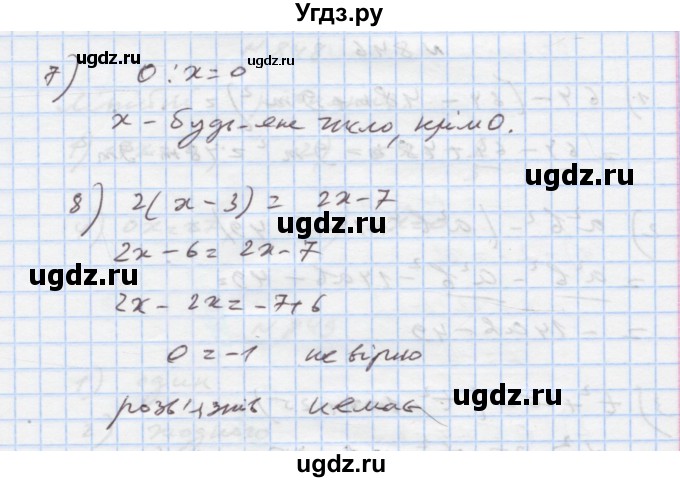 Угдз.ру
7) 0 : x = 0
x – будь-яке число, крім 0.
8) 2(x – 3) = 2x – 7
2x – 6 = 2x – 7
2x – 2x = –7 + 6
0 = –1 не вірно
розв'язків немає
ugdz.ru
ugdz.ru
ugdz.ru
ugdz.ru
ugdz.ru
ugdz.ru
ugdz.ru
ugdz.ru